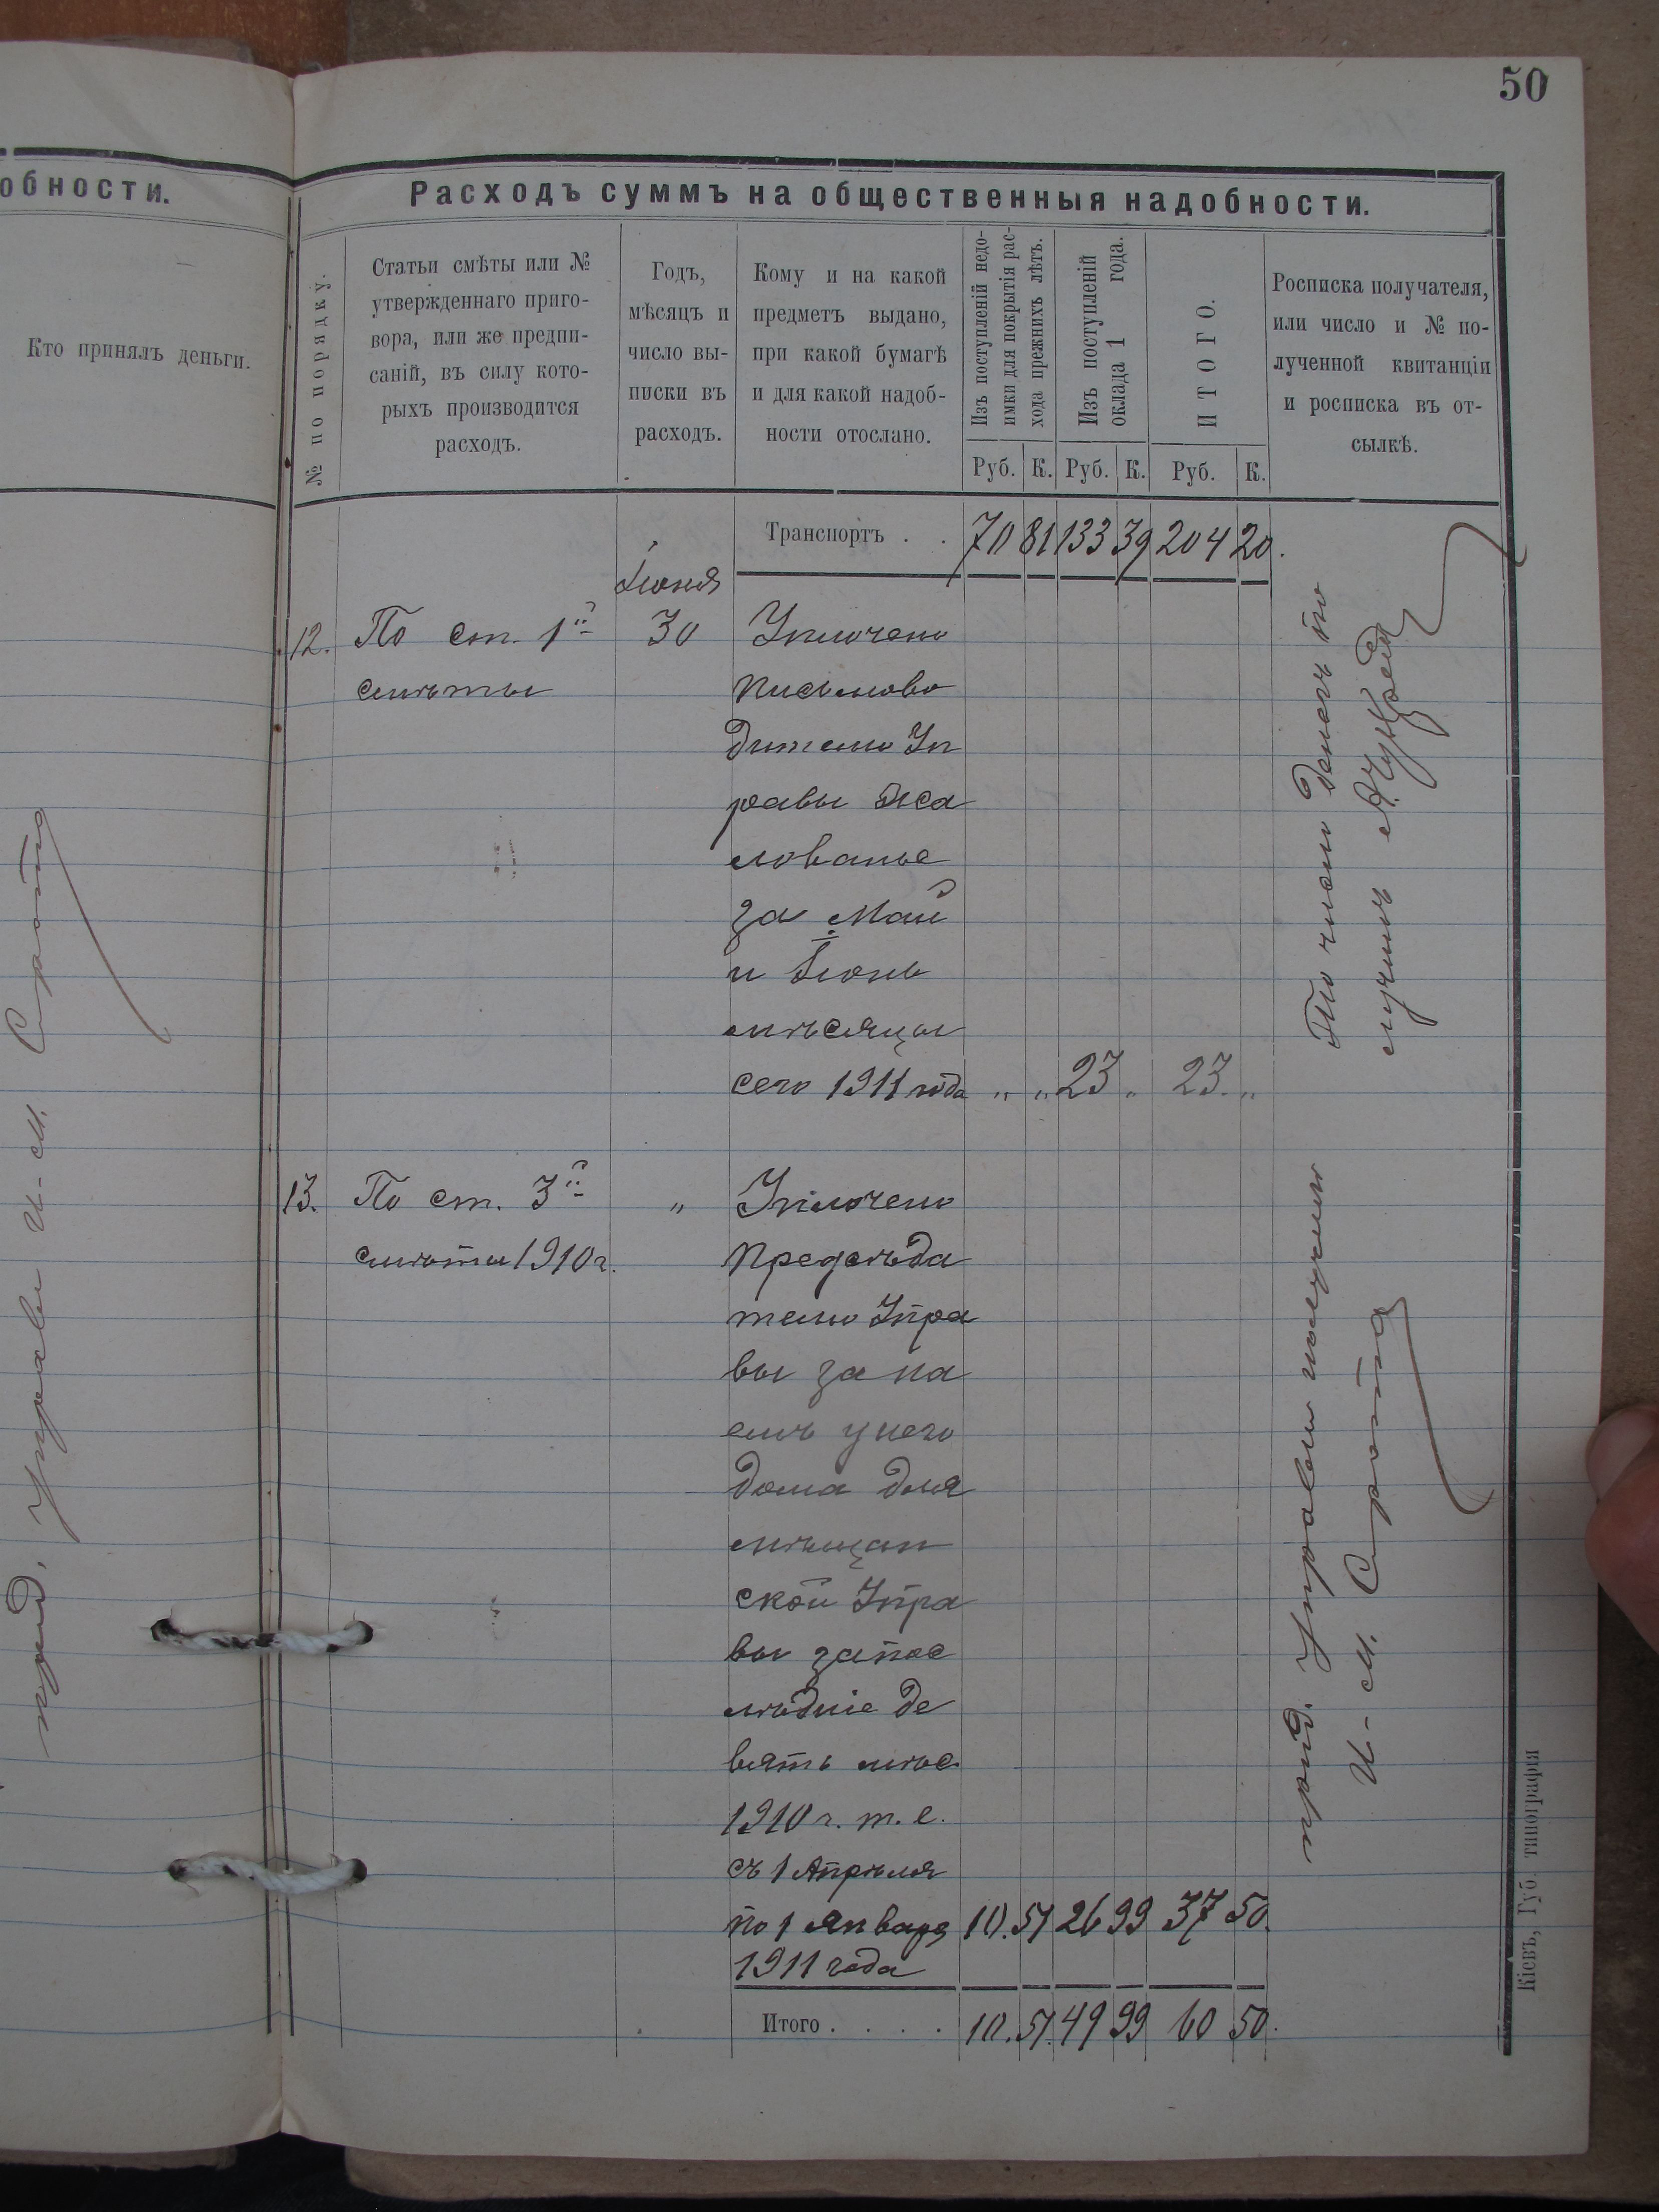 50
обности.
Кто принялъ деньги.
Управы И-М. Сирота
Расходъ суммъ на общественныя надобности.
№ по порядку.
Статьи смѣты или №
утвержденнаго приго-
вора, или же предпи-
саній, въ силу кото-
рыхъ производится
расходъ.
Годъ,
мѣсяцъ и
число вы-
писки въ
расходъ.
Кому и на какой
предметъ выдано,
при какой бумагѣ
и для какой надоб-
ности отослано.
Изъ поступленій недо-
имки для покрытія рас-
хода прежнихъ лѣтъ.
Изъ поступленій
оклада 1 года.
ИТОГО.
Росписка получателя,
или число и № по-
лученной квитанціи
и росписка въ от-
сылкѣ.
Руб. К. Руб. К. Руб. К.
Транспортъ . . 70 81 133 39 204 20.
Іюня
12. По ст. 1й 30 Уплочено
смѣты письмово
дителю Уп
равы жа
лованье
за Май
и Іюнь
мѣсяцы
сего 1911 года „ „ 23 „ 23. „
Тио числи денегъ по
лучилъ
13. По ст. 3й „ Уплочено
смѣты 1910 г. Предсѣда
телю Упра
вы за на
емъ у него
дома для
мѣщан
ской Упра
вы запос
лѣдніе де
вять мѣс.
1910 г. т. е.
съ 1 Апрѣля
по 1 Января 10. 51 26 99 37 50.
1911 года
Управы получилъ
И-М. Сирота
Итого . . . . 10. 51. 49 99 60 50.
Кіевъ, Губ. типографія